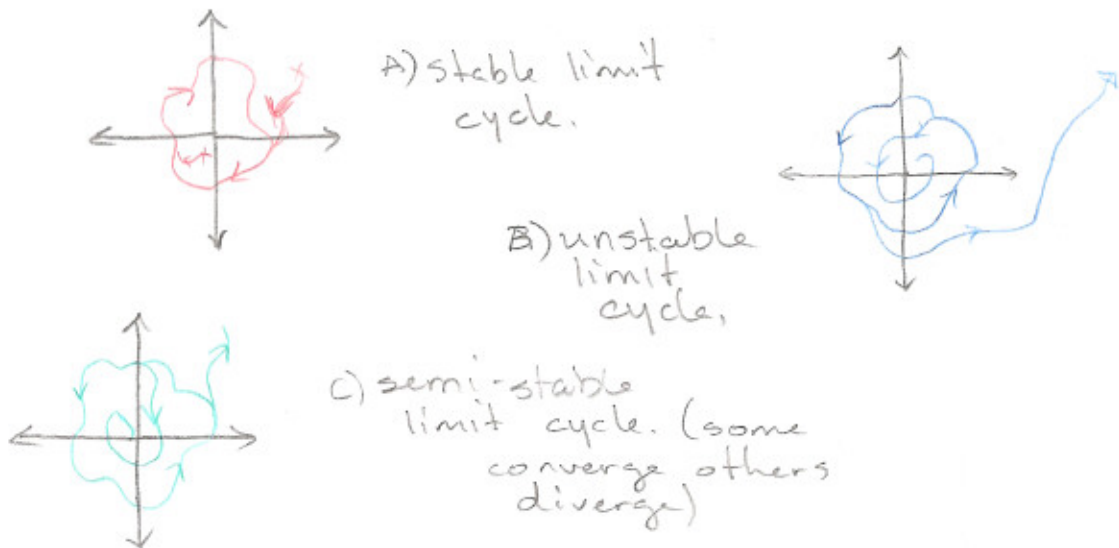 A) stable limit
cycle.
B) unstable
limit
cycle.
C) semi-stable
limit cycle. (some
converge others
diverge)